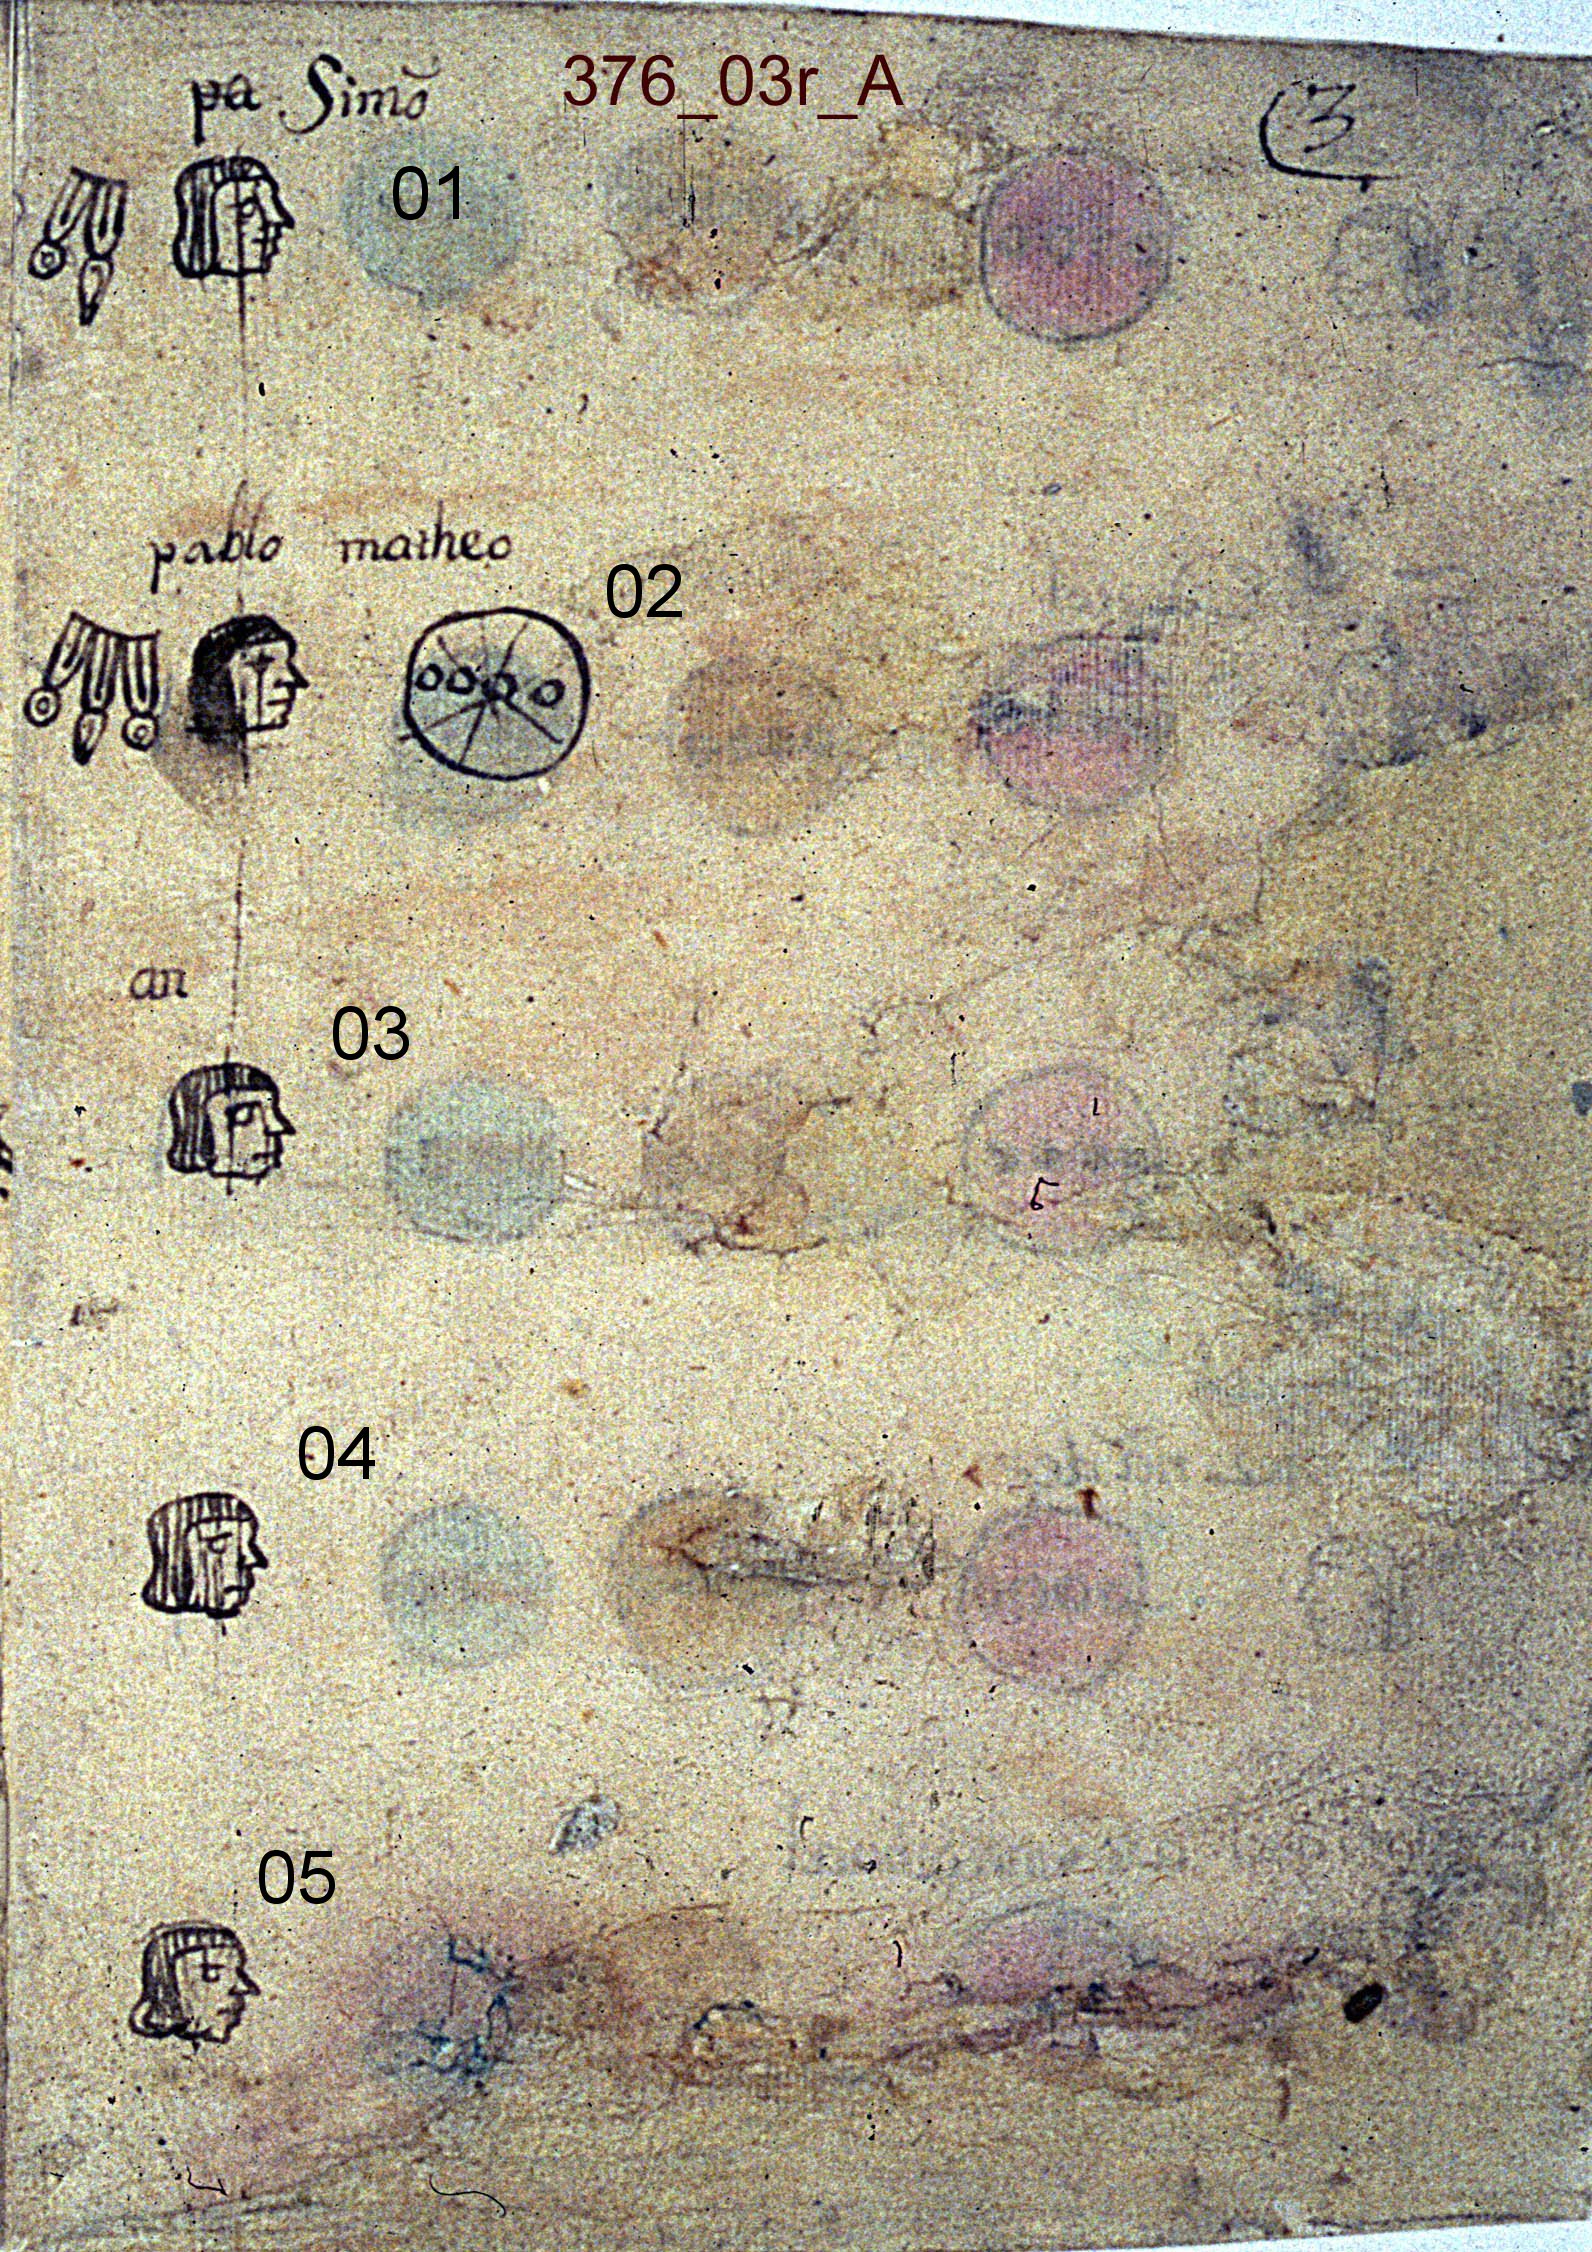 pa Simō
376_03r_A
3
01
pablo matheo
02
an
03
04
05